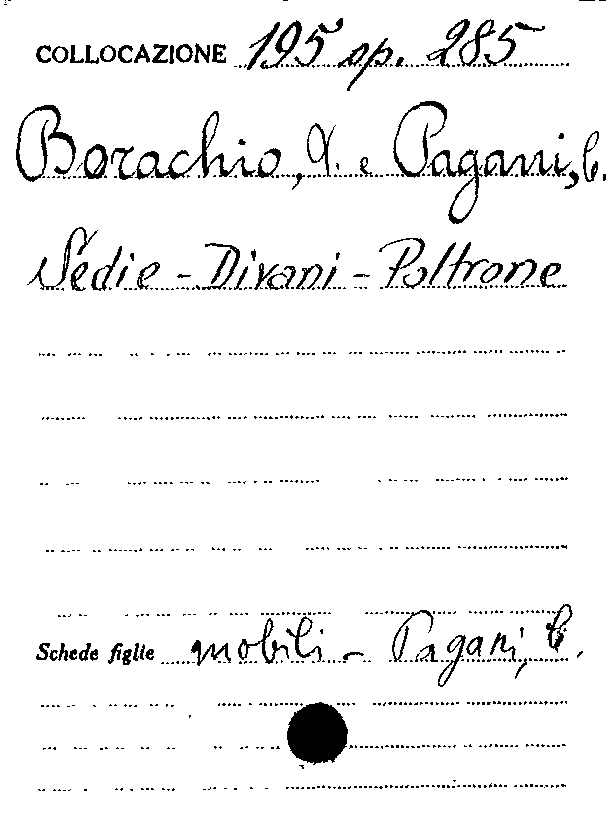 COLLOCAZIONE 195 op. 285
Borachio, A. e Pagani, C.
Sedie - Divani - Poltrone
Schede figlie mobili - Pagani, C.